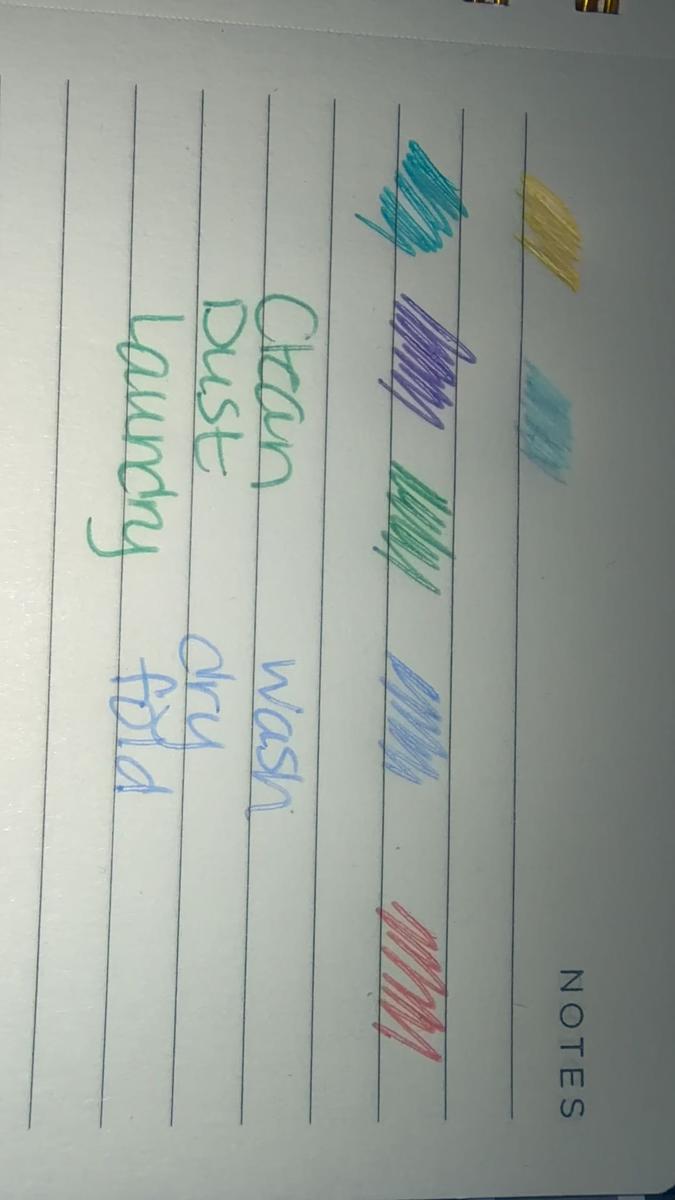 NOTES
Clean wash
Dust dry
Laundry fold